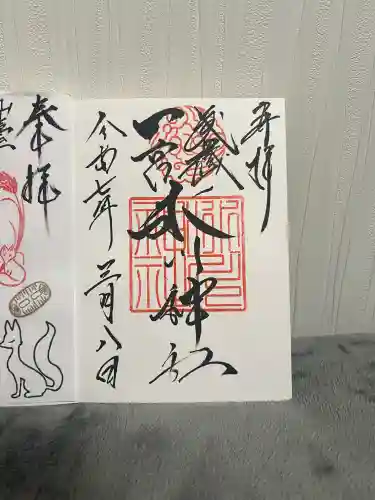 奉拝
武蔵
一宮
氷川神社
令和七年 三月八日
奉拝